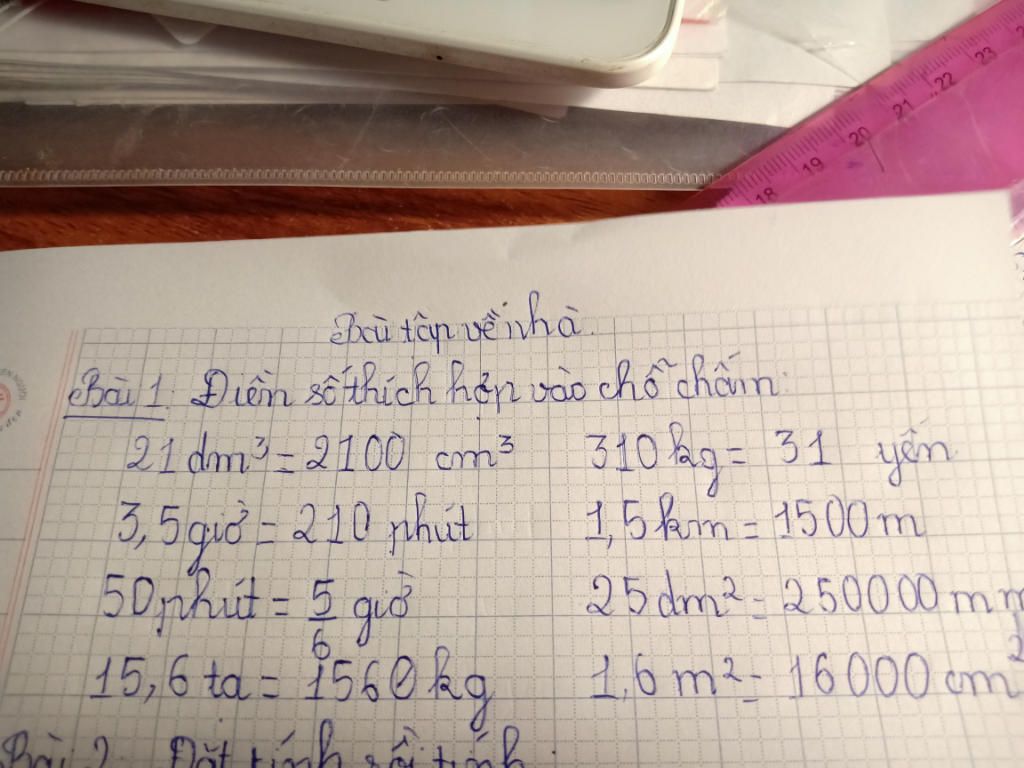 18 19 20 21 22 23
Bài tập về nhà.
Bài 1: Điền số thích hợp vào chỗ chấm:
21 dm³ = 2100 cm³ 310 kg = 31 yến
3,5 giờ = 210 phút 1,5 km = 1500 m
50 phút = 5/6 giờ 25 dm² = 250000 mm
15,6 tạ = 1560 kg 1,6 m² = 16000 cm²
Bài 2: Đặt tính rồi tính: